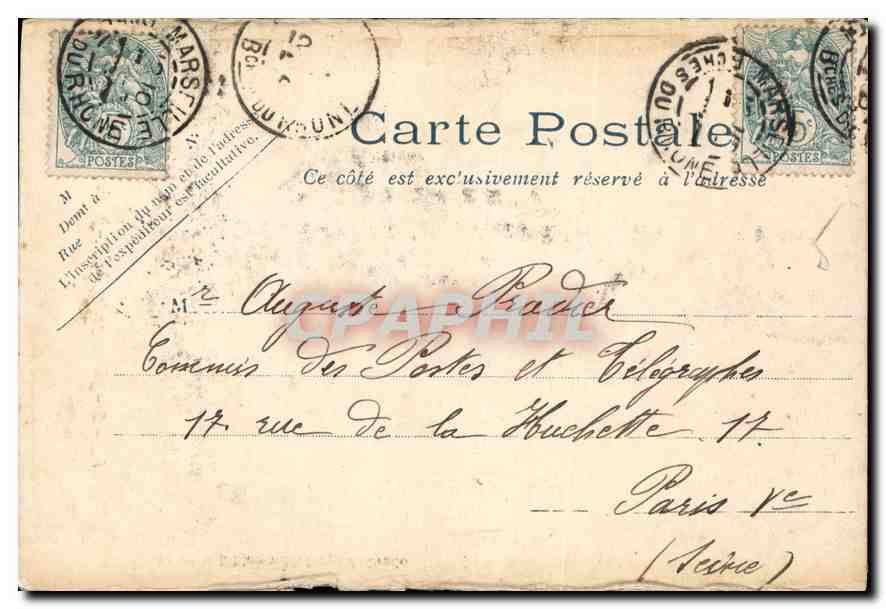 Carte Postale
Ce côté est exclusivement réservé à l'adresse
M
Demt à
Rue N
L'Inscription du nom et de l'adresse
de l'expéditeur est facultative.
POSTES
MARSEILLE
B. DU RHONE
MARSEILLE
BCHES DU RHONE
CPAPHIL
Mr Auguste Pradier
Commis des Postes et Télégraphes
17 rue de la Huchette 17
Paris Ve
(Seine)